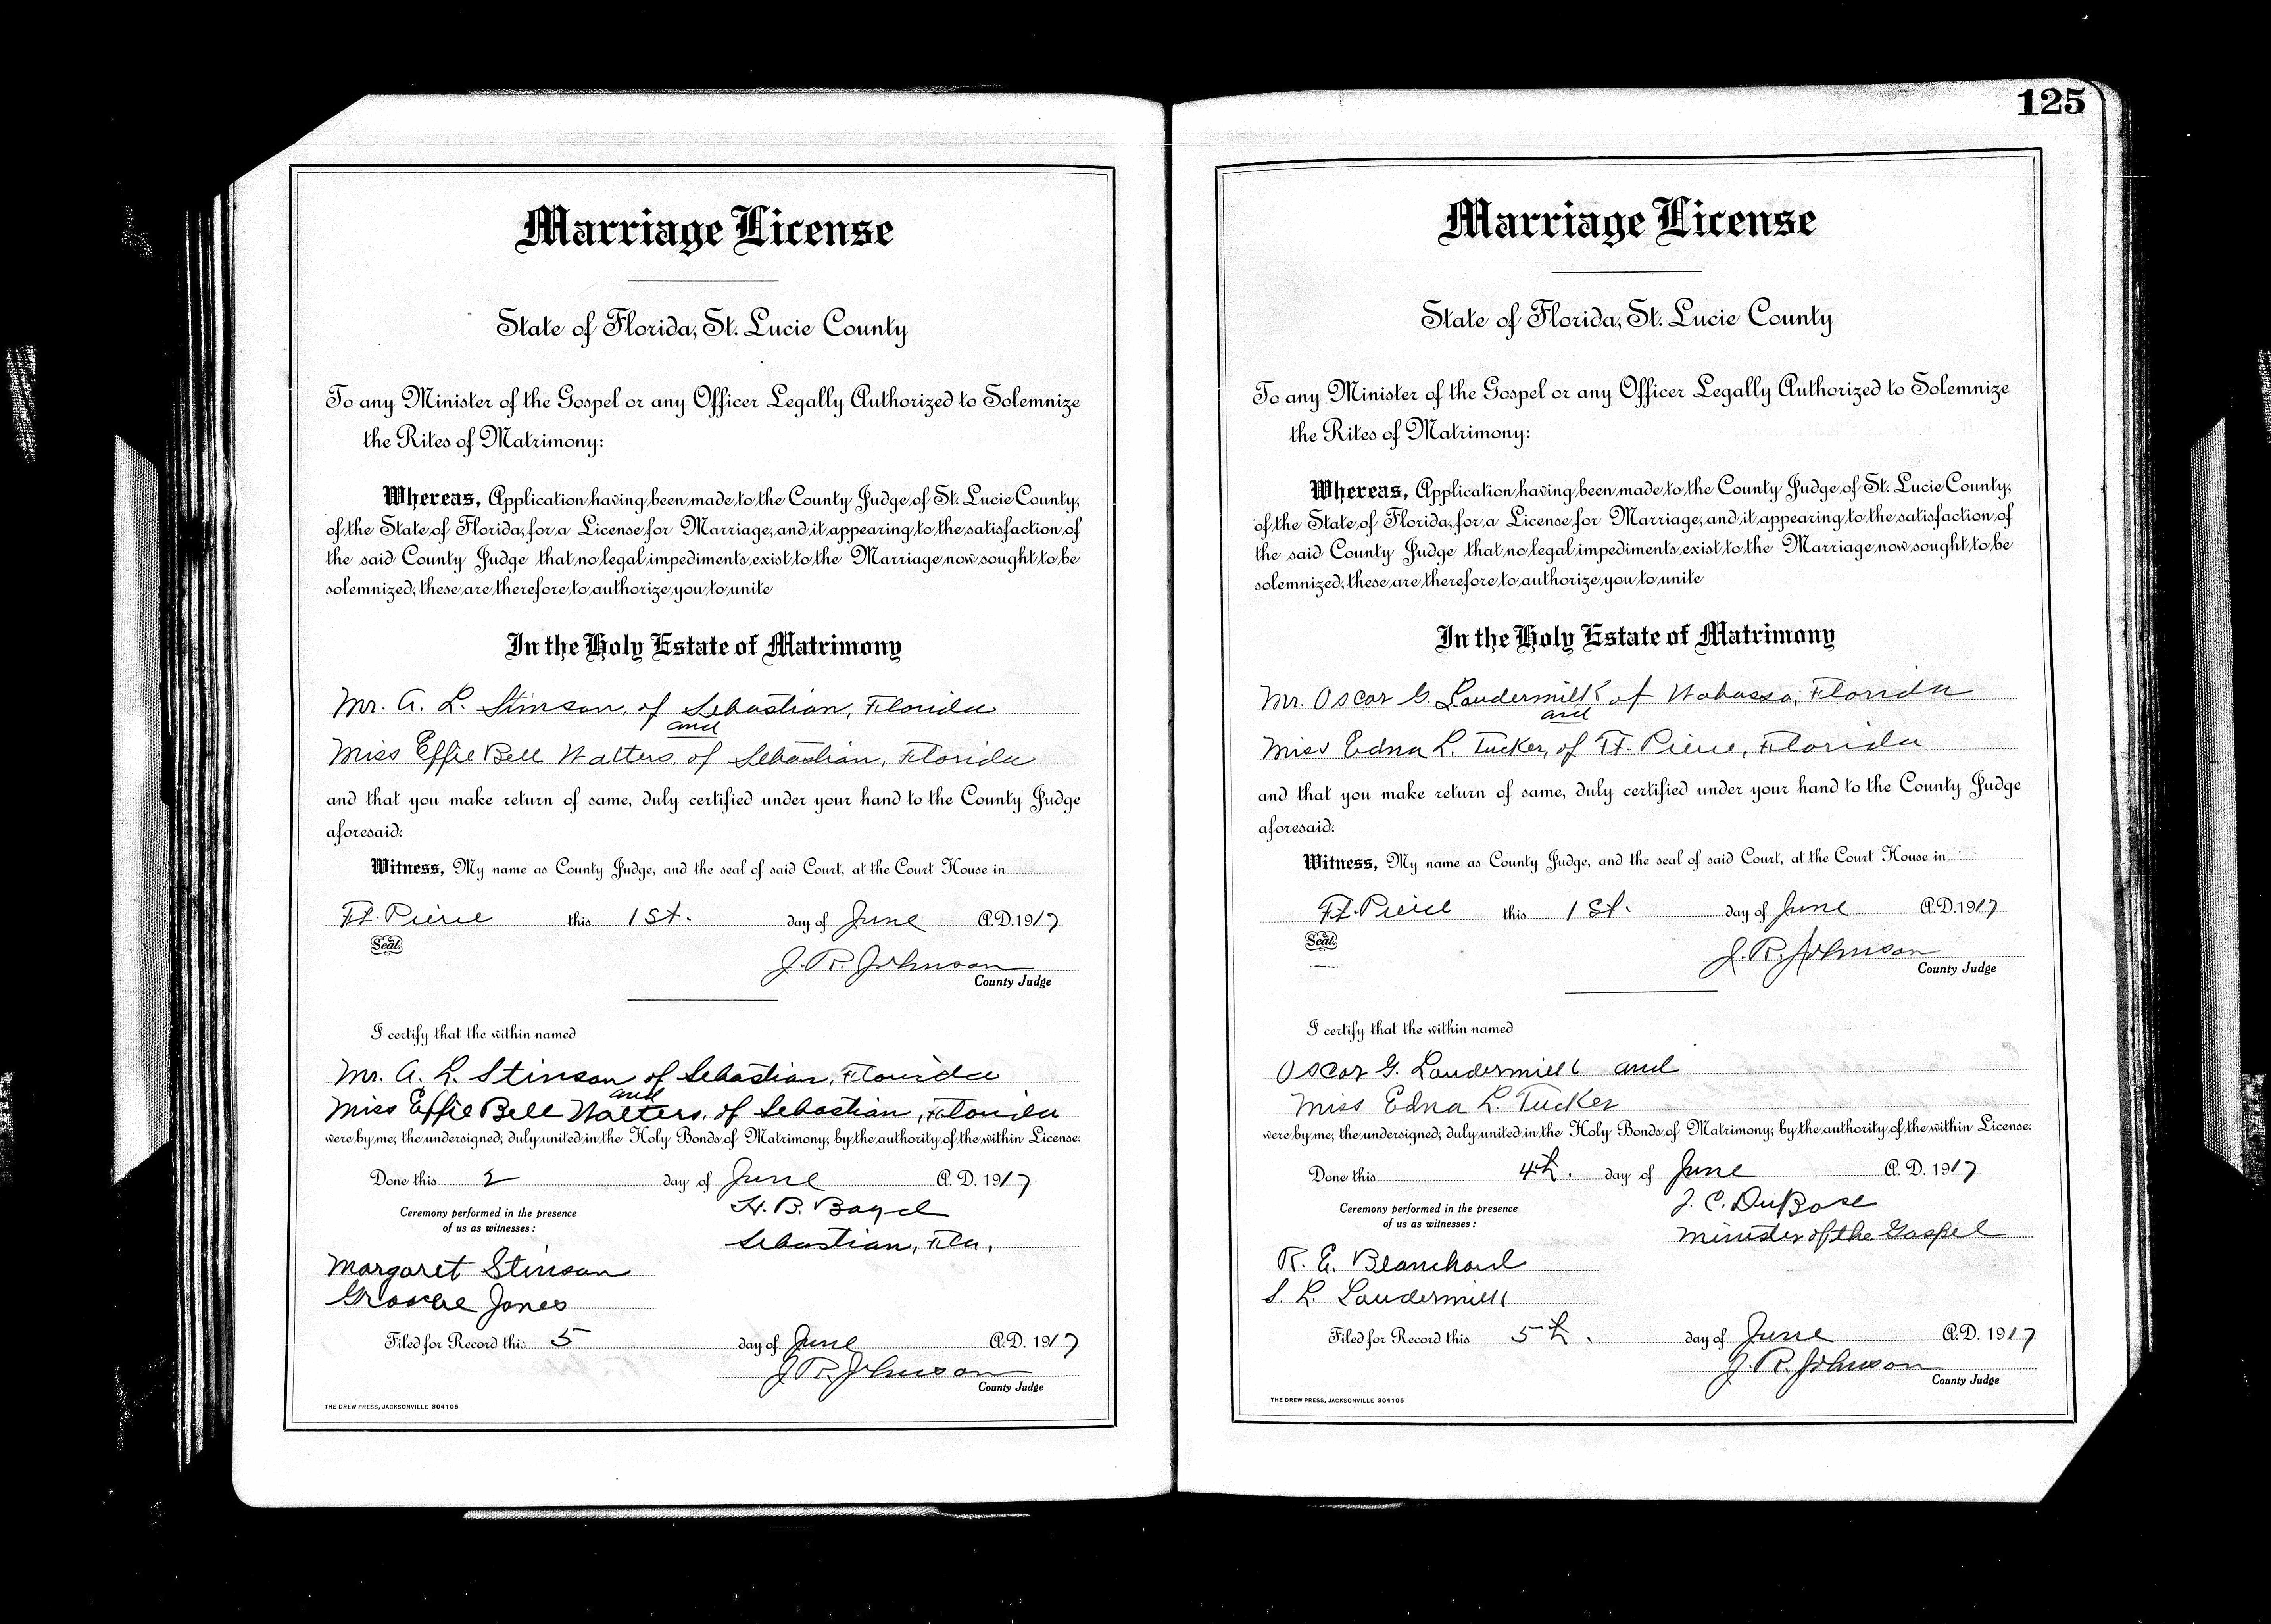 Marriage License
State of Florida, St. Lucie County
To any Minister of the Gospel or any Officer Legally Authorized to Solemnize
the Rites of Matrimony:
Whereas, Application having been made to the County Judge of St. Lucie County,
of the State of Florida, for a License for Marriage, and it appearing to the satisfaction of
the said County Judge that no legal impediments exist to the Marriage now sought to be
solemnized; these are therefore to authorize you to unite
In the Holy Estate of Matrimony
Mr. A. L. Stinson, of Sebastian, Florida
and
Miss Effie Bell Walters, of Sebastian, Florida
and that you make return of same, duly certified under your hand to the County Judge
aforesaid.
Witness, My name as County Judge, and the seal of said Court, at the Court House in
Ft. Pierce this 1st. day of June A.D. 1917
Seal.
J. R. Johnson
County Judge
I certify that the within named
Mr. A. L. Stinson of Sebastian, Florida
and
Miss Effie Bell Walters, of Sebastian, Florida
were by me, the undersigned, duly united in the Holy Bonds of Matrimony, by the authority of the within License.
Done this 2 day of June A. D. 1917
Ceremony performed in the presence
of us as witnesses:
H. B.
Sebastian, Fla,
Margaret Stinson
Jones
Filed for Record this 5 day of June A.D. 1917
J. R. Johnson
County Judge
THE DREW PRESS, JACKSONVILLE 304105
125
Marriage License
State of Florida, St. Lucie County
To any Minister of the Gospel or any Officer Legally Authorized to Solemnize
the Rites of Matrimony:
Whereas, Application having been made to the County Judge of St. Lucie County,
of the State of Florida, for a License for Marriage, and it appearing to the satisfaction of
the said County Judge that no legal impediments exist to the Marriage now sought to be
solemnized; these are therefore to authorize you to unite
In the Holy Estate of Matrimony
Mr. Oscar G. Laudermilk of Wabasso, Florida
and
Miss Edna L. Tucker, of Ft. Pierce, Florida
and that you make return of same, duly certified under your hand to the County Judge
aforesaid.
Witness, My name as County Judge, and the seal of said Court, at the Court House in
Ft. Pierce this 1st. day of June A.D. 1917
Seal.
J. R. Johnson
County Judge
I certify that the within named
Oscar G. Laudermilk and
Miss Edna L. Tucker
were by me, the undersigned, duly united in the Holy Bonds of Matrimony, by the authority of the within License.
Done this 4th. day of June A. D. 1917
Ceremony performed in the presence
of us as witnesses:
J. C. DuBose
Minister of the Gospel
R. E. Blanchard
S. L. Laudermilk
Filed for Record this 5th. day of June A.D. 1917
J. R. Johnson
County Judge
THE DREW PRESS, JACKSONVILLE 304105